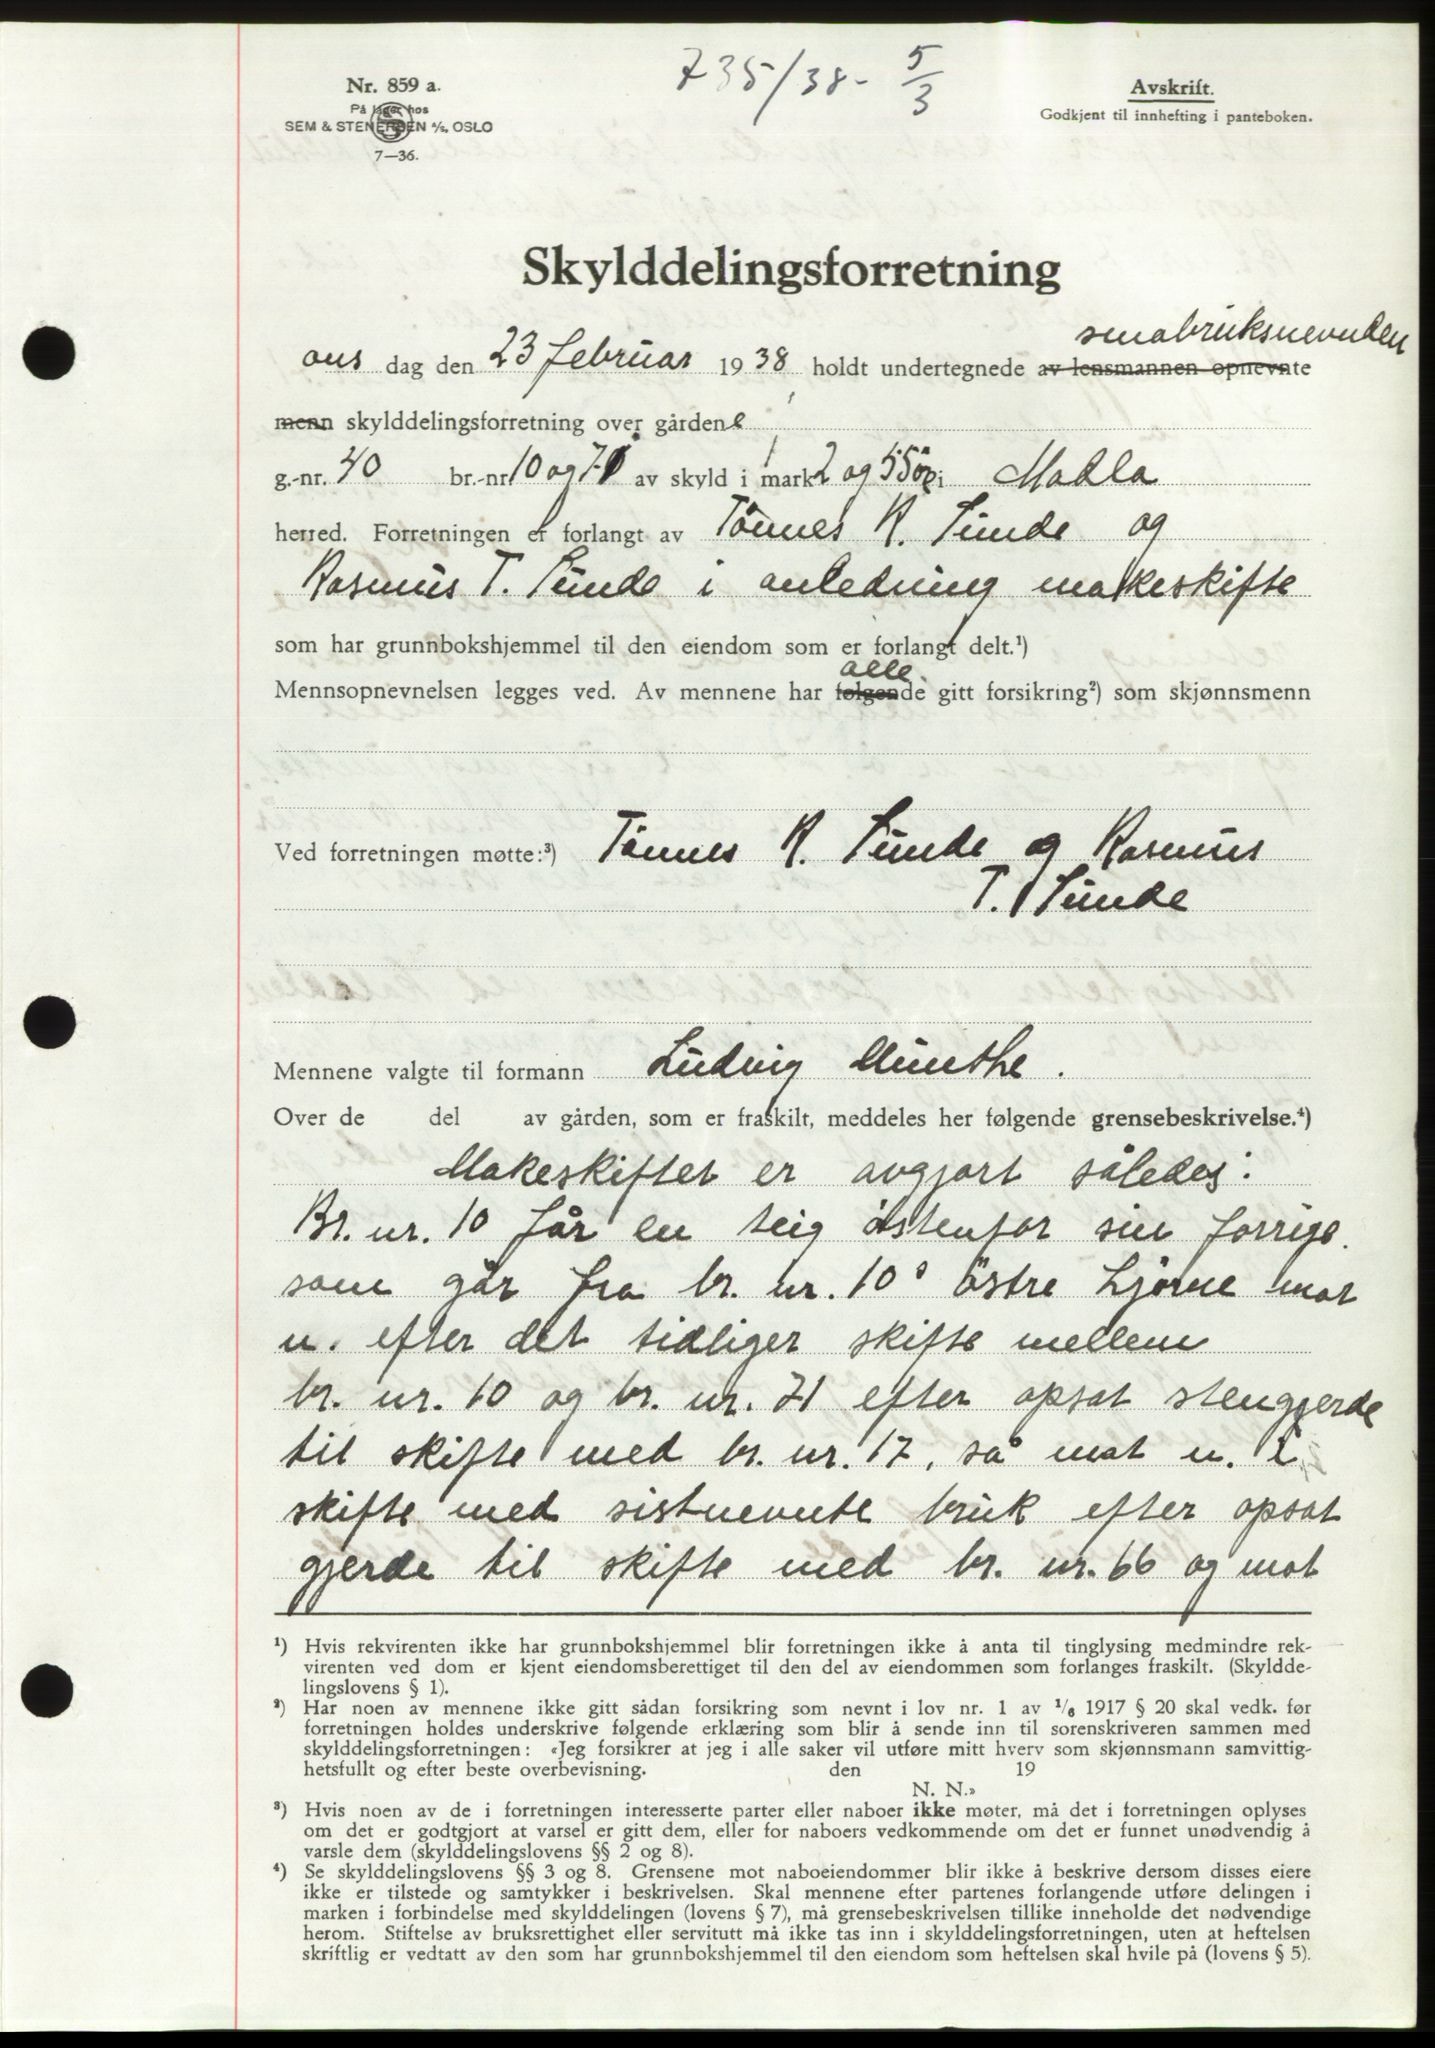 735/38 - 5/3
Nr. 859 a.
På lager hos
SEM & STENERSEN A/S, OSLO
7—36.
Avskrift.
Godkjent til innhefting i panteboken.
Skylddelingsforretning
smabruksnevnden
ons dag den 23 februar 1938 holdt undertegnede av lensmannen opnevnte
menn skylddelingsforretning over gårdene
g.-nr. 40 br.-nr. 10 og 71 av skyld i mark 2 og 55 øre i Madla
herred. Forretningen er forlangt av Tönnes K. Sunde og
Rasmus T. Sunde i anledning makeskifte
som har grunnbokshjemmel til den eiendom som er forlangt delt.¹)
alle
Mennsopnevnelsen legges ved. Av mennene har følgende gitt forsikring²) som skjønnsmenn
Ved forretningen møtte:³) Tönnes K. Sunde og Rasmus
T. Sunde
Mennene valgte til formann Ludvig Munthe.
Over de del av gården, som er fraskilt, meddeles her følgende grensebeskrivelse.⁴)
Makeskiftet er avgjort således:
Br. nr. 10 får en teig östenfor sin forrige
som går fra br. nr. 10s östre hjörne mot
n. efter det tidliger skifte mellem
br. nr. 10 og br. nr. 71 efter opsat stengjerde
til skifte med br. nr. 17, så mot n. i
skifte med sistnevnte bruk efter opsat
gjerde til skifte med br. nr. 66 og mot
¹) Hvis rekvirenten ikke har grunnbokshjemmel blir forretningen ikke å anta til tinglysing medmindre rek-
virenten ved dom er kjent eiendomsberettiget til den del av eiendommen som forlanges fraskilt. (Skyldde-
lingslovens § 1).
²) Har noen av mennene ikke gitt sådan forsikring som nevnt i lov nr. 1 av 1/6 1917 § 20 skal vedk. før
forretningen holdes underskrive følgende erklæring som blir å sende inn til sorenskriveren sammen med
skylddelingsforretningen: «Jeg forsikrer at jeg i alle saker vil utføre mitt hverv som skjønnsmann samvittig-
hetsfullt og efter beste overbevisning. den 19
N. N.»
³) Hvis noen av de i forretningen interesserte parter eller naboer ikke møter, må det i forretningen oplyses
om det er godtgjort at varsel er gitt dem, eller for naboers vedkommende om det er funnet unødvendig å
varsle dem (skylddelingslovens §§ 2 og 8).
⁴) Se skylddelingslovens §§ 3 og 8. Grensene mot naboeiendommer blir ikke å beskrive dersom disses eiere
ikke er tilstede og samtykker i beskrivelsen. Skal mennene efter partenes forlangende utføre delingen i
marken i forbindelse med skylddelingen (lovens § 7), må grensebeskrivelsen tillike inneholde det nødvendige
herom. Stiftelse av bruksrettighet eller servitutt må ikke tas inn i skylddelingsforretningen, uten at heftelsen
skriftlig er vedtatt av den som har grunnbokshjemmel til den eiendom som heftelsen skal hvile på (lovens § 5).